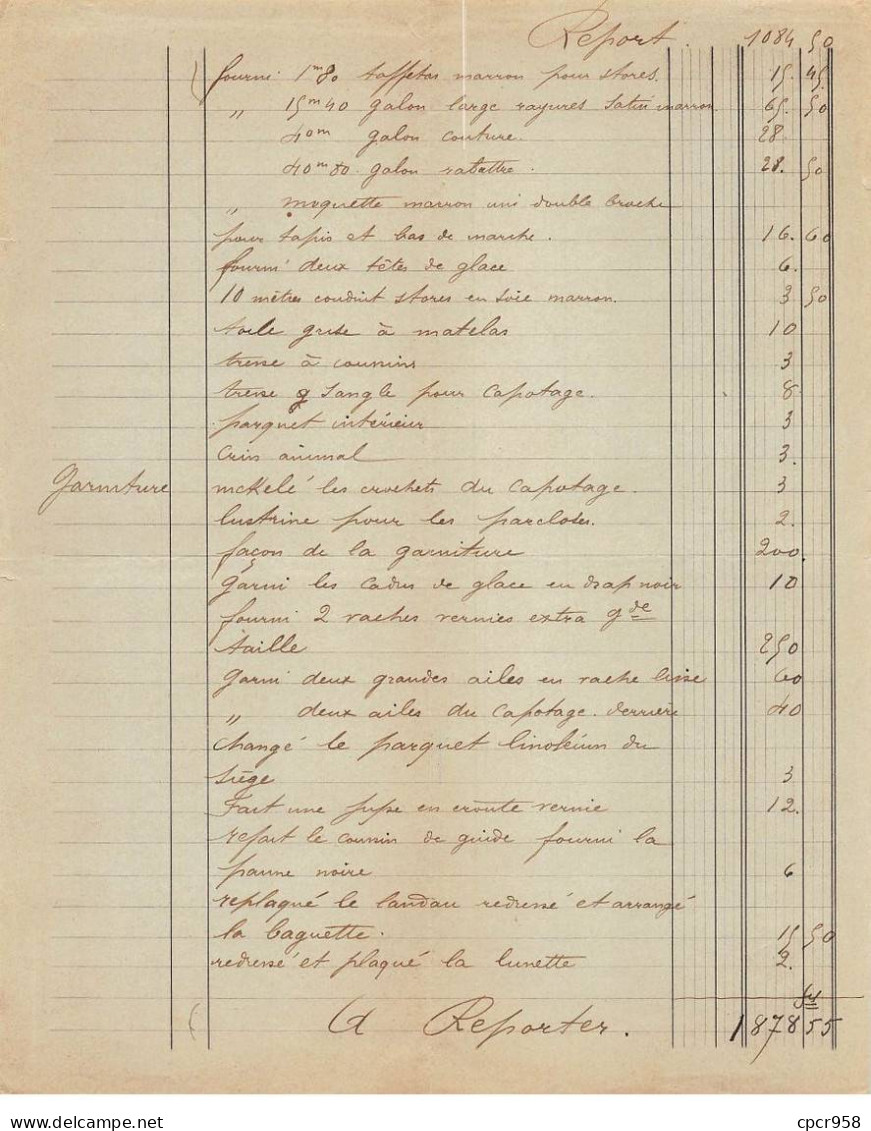 Report. 1084 50
fourni 1m80 taffetas marron pour stores. 15. 45.
" 15m40 galon large rayures satin marron 65. 50
40m galon couture. 28.
40m80. galon rabattre. 28. 50
" moquette marron uni double broche
pour tapis et bas de marche. 16. 60
fourni deux têtes de glace 6.
10 mètres conduit stores en soie marron. 3 50
toile grise à matelas 10
tresse à coussins 3
tresse sangle pour capotage. 8.
parquet intérieur 3
crin animal 3.
Garniture nickelé les crochets du capotage. 3
lustrine pour les parcloses. 2.
façon de la garniture 200.
garni les cadres de glace en drap noir 10
fourni 2 vaches vernies extra gde
taille 250
garni deux grandes ailes en vache lisse 60
" deux ailes du capotage. derrière 40
changé le parquet linoléum du
siège 3
Fait une jupe en croute vernie 12.
refait le coussin de guide fourni la
panne noire 6
replaqué le landau redressé et arrangé
la baguette. 15 50
redressé et plaqué la lunette 2.
A Reporter. 1878 55
delcampe.net
cpcr958